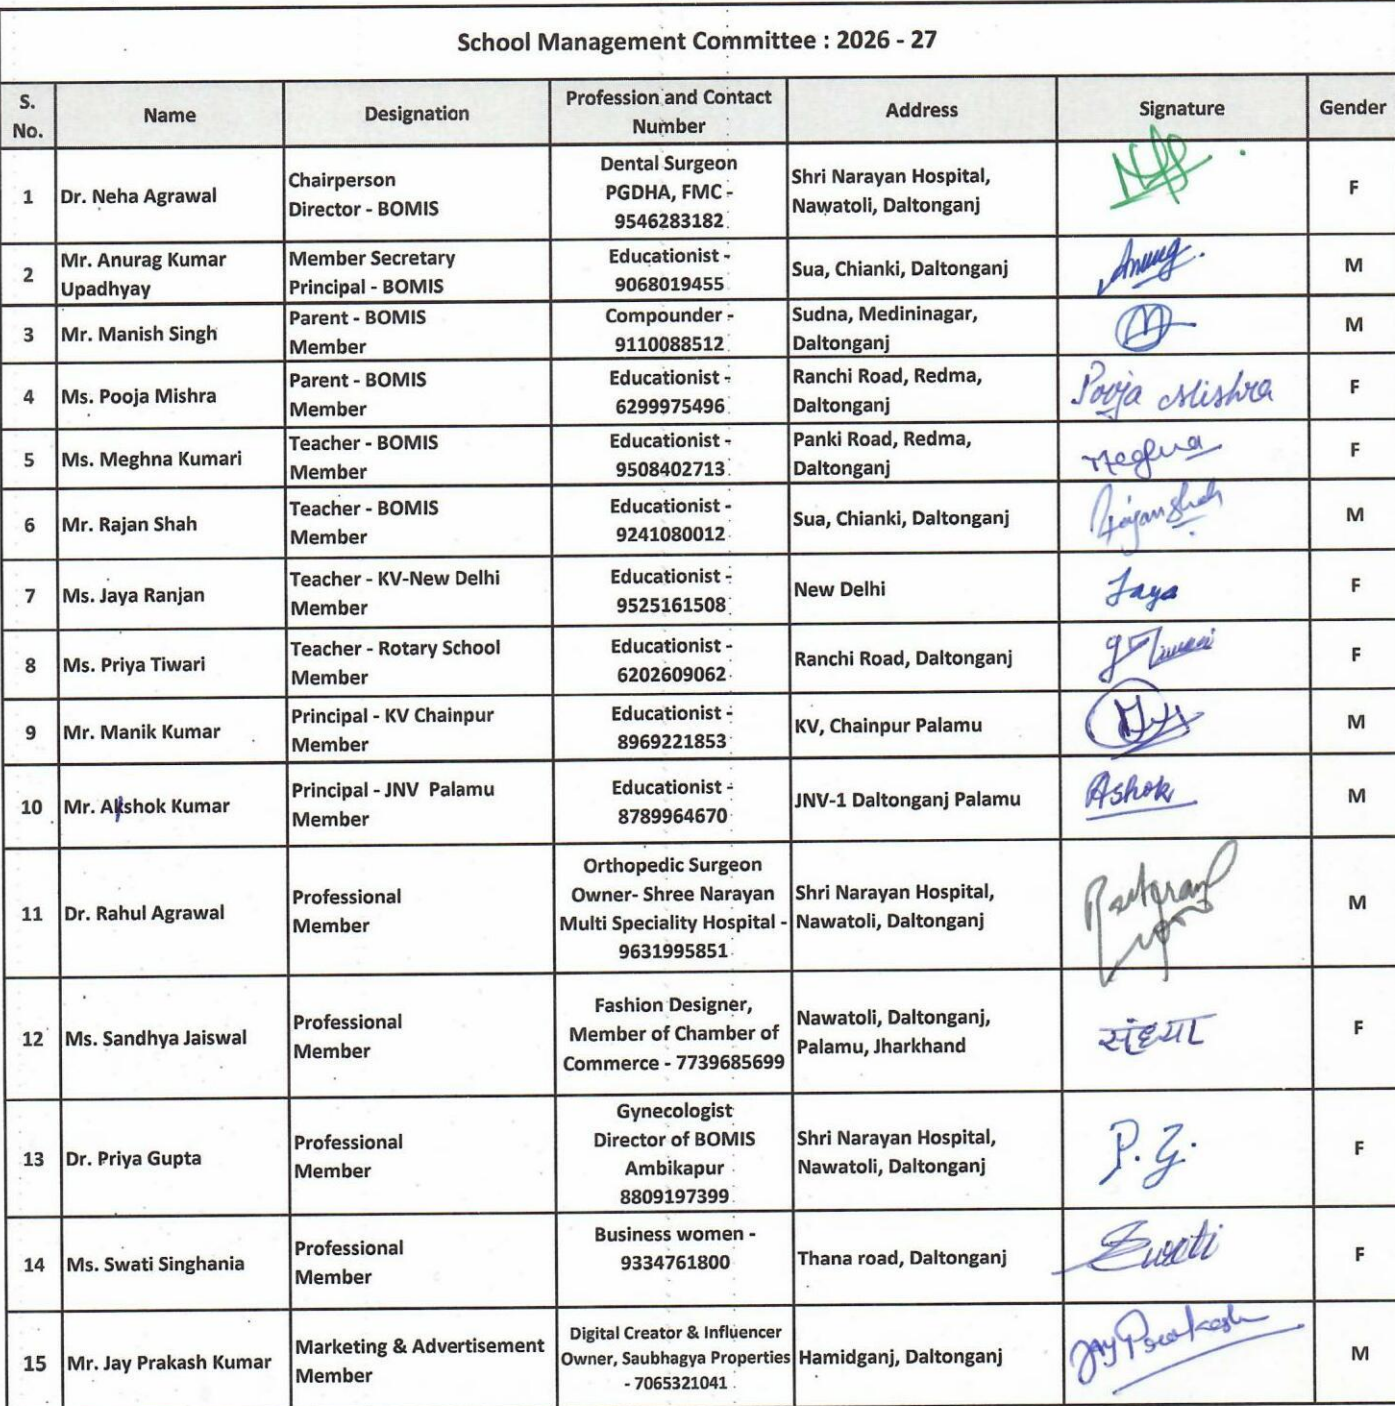 School Management Committee : 2026 - 27
S. No. Name Designation Profession and Contact Number Address Signature Gender
1 Dr. Neha Agrawal Chairperson Director - BOMIS Dental Surgeon PGDHA, FMC - 9546283182 Shri Narayan Hospital, Nawatoli, Daltonganj F
2 Mr. Anurag Kumar Upadhyay Member Secretary Principal - BOMIS Educationist - 9068019455 Sua, Chianki, Daltonganj Anurag M
3 Mr. Manish Singh Parent - BOMIS Member Compounder - 9110088512 Sudna, Medininagar, Daltonganj M
4 Ms. Pooja Mishra Parent - BOMIS Member Educationist - 6299975496 Ranchi Road, Redma, Daltonganj Pooja Mishra F
5 Ms. Meghna Kumari Teacher - BOMIS Member Educationist - 9508402713 Panki Road, Redma, Daltonganj Meghna F
6 Mr. Rajan Shah Teacher - BOMIS Member Educationist - 9241080012 Sua, Chianki, Daltonganj Rajan Shah M
7 Ms. Jaya Ranjan Teacher - KV-New Delhi Member Educationist - 9525161508 New Delhi Jaya F
8 Ms. Priya Tiwari Teacher - Rotary School Member Educationist - 6202609062 Ranchi Road, Daltonganj F
9 Mr. Manik Kumar Principal - KV Chainpur Member Educationist - 8969221853 KV, Chainpur Palamu M
10 Mr. Akshok Kumar Principal - JNV Palamu Member Educationist - 8789964670 JNV-1 Daltonganj Palamu Ashok M
11 Dr. Rahul Agrawal Professional Member Orthopedic Surgeon Owner- Shree Narayan Multi Speciality Hospital - 9631995851 Shri Narayan Hospital, Nawatoli, Daltonganj M
12 Ms. Sandhya Jaiswal Professional Member Fashion Designer, Member of Chamber of Commerce - 7739685699 Nawatoli, Daltonganj, Palamu, Jharkhand संध्या F
13 Dr. Priya Gupta Professional Member Gynecologist Director of BOMIS Ambikapur 8809197399 Shri Narayan Hospital, Nawatoli, Daltonganj P.G. F
14 Ms. Swati Singhania Professional Member Business women - 9334761800 Thana road, Daltonganj Swati F
15 Mr. Jay Prakash Kumar Marketing & Advertisement Member Digital Creator & Influencer Owner, Saubhagya Properties - 7065321041 Hamidganj, Daltonganj Jay Prakash M